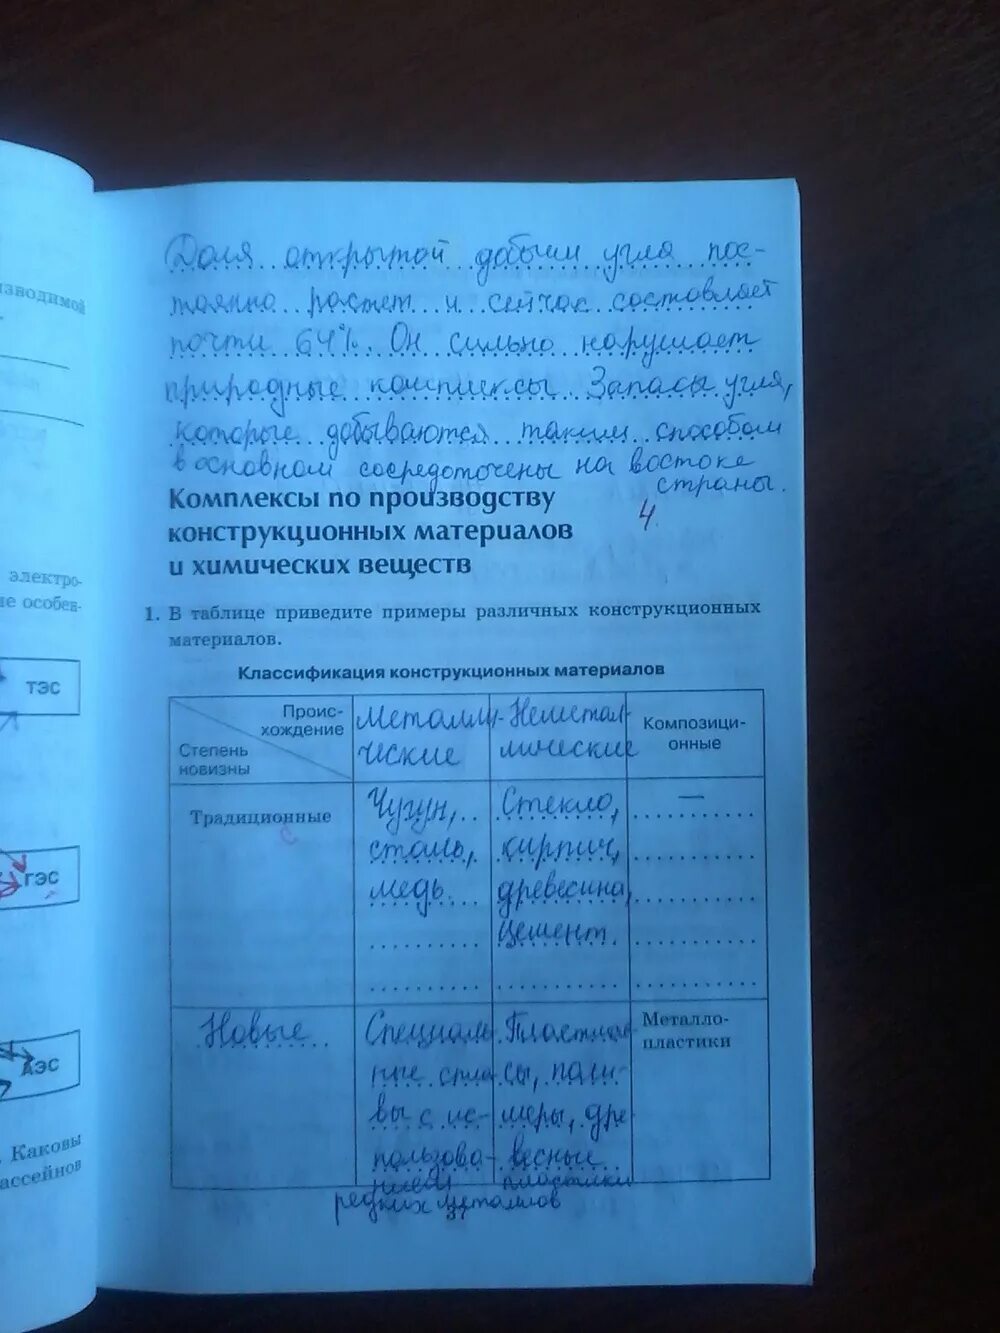 Доля открытой добычи угля пос-
тоянно растет и сейчас составляет
почти 64%. Он сильно нарушает
природные комплексы. Запасы угля,
которые добываются таким способом
в основном сосредоточены на востоке
страны.
Комплексы по производству
4
конструкционных материалов
и химических веществ
1. В таблице приведите примеры различных конструкционных
материалов.
Классификация конструкционных материалов
Проис-
хождение
Степень
новизны
Металли-
ческие
Неметал-
лические
Композици-
онные
Традиционные
Чугун,
сталь,
медь
Стекло,
кирпич,
древесина,
цемент.
—
Новые
Специаль
ные спла
вы с ис-
пользова-
нием
редких металлов
Пластмас
сы, поли-
меры, дре
весные
пластики
Металло-
пластики
37
изводимой
электро-
ие особен-
ТЭС
ГЭС
АЭС
. Каковы
ассейнов